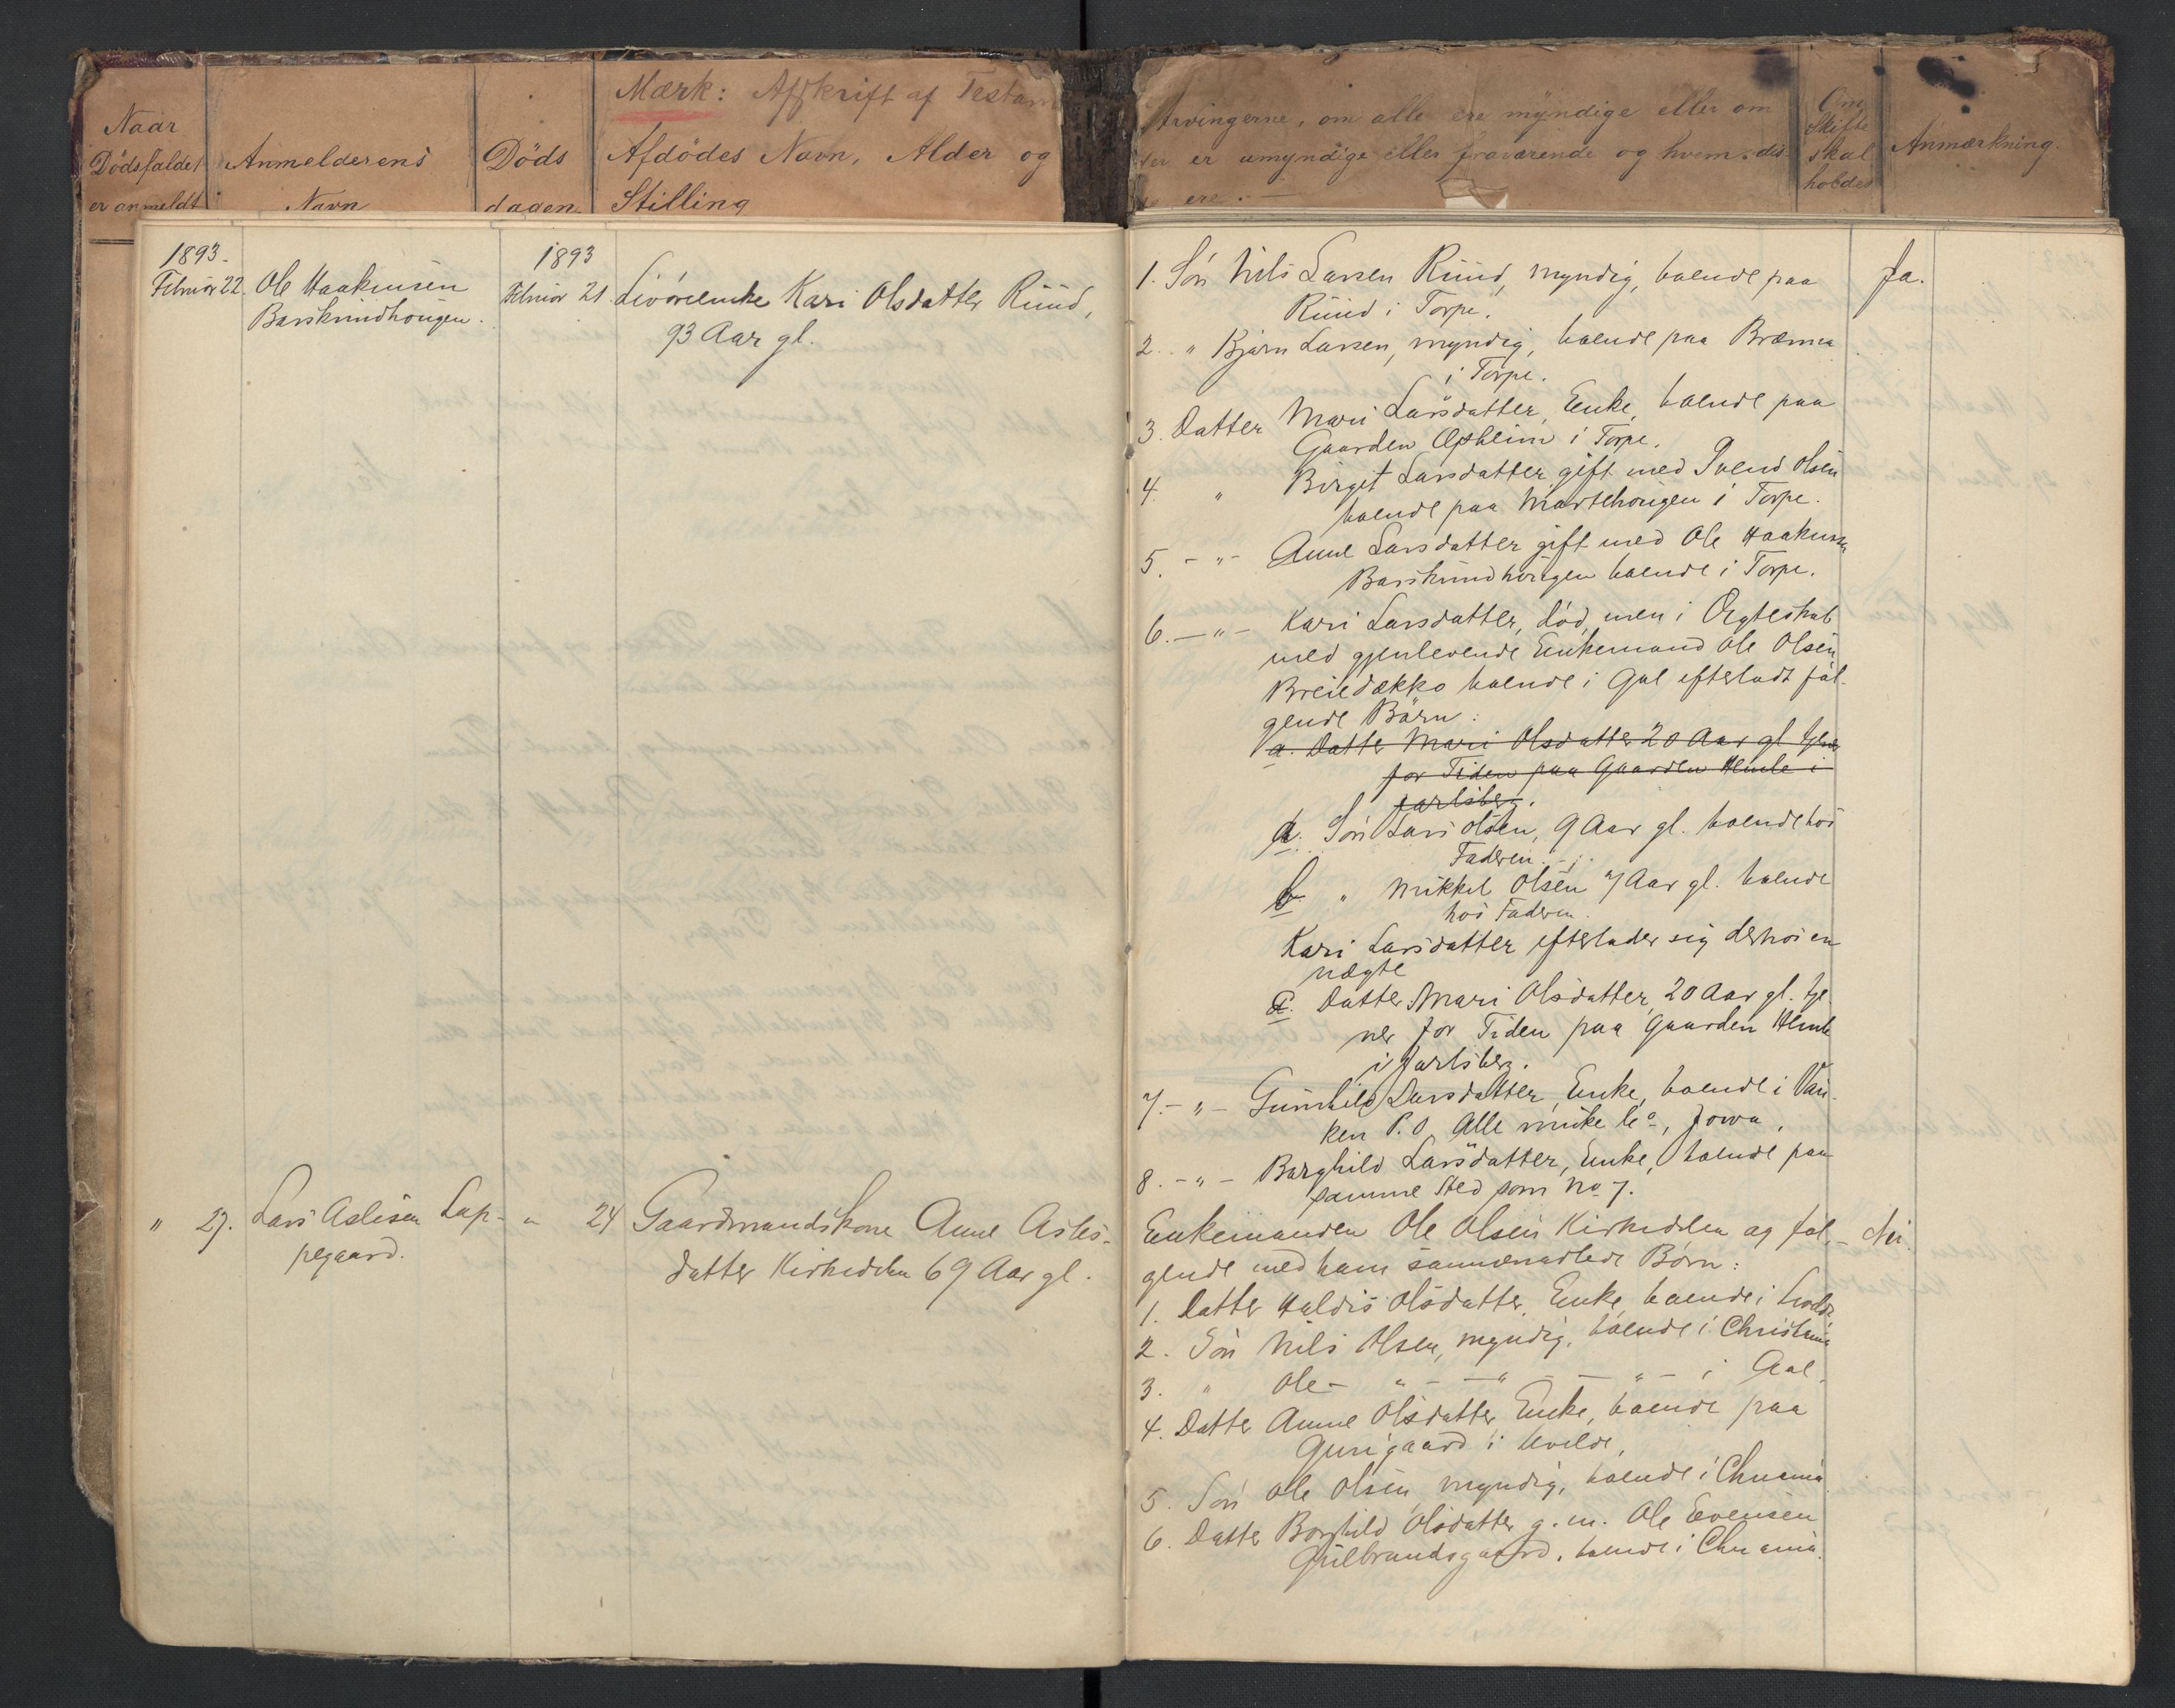 Mærk: Afskrift af Testam
Naar
Dødsfaldet
er anmeldt
Anmelderens
Navn
Døds
dagen
Afdødes Navn, Alder og
Stilling
Arvingerne, om alle ere myndige eller om
er umyndige eller fraværende og hvem dis-
ere.
Om
Skifte
skal
holdes
Anmærkning.
1893.
Februar 22.
Ole Haakensen
Barskrindhougen.
1893
Februar 21.
Livøreenke Kari Olsdatter Ruud,
93 Aar gl.
1. Søn Nils Larsen Ruud, myndig, boende paa
Ruud i Torpe.
Ja.
2. " Bjørn Larsen, myndig, boende paa Bræmen
i Torpe.
3. Datter Mari Larsdatter, Enke, boende paa
Gaarden Opheim i Torpe.
4. " Birgit Larsdatter gift med Svend Olsen
boende paa Martehougen i Torpe.
5. -"- Anne Larsdatter gift med Ole Haakensen
Barskrindhougen boende i Torpe.
6. -"- Kari Larsdatter, død, men i Ægteskab
med gjenlevende Enkemand Ole Olsen
Breiedokko boende i Gol efterladt føl-
gende Børn:
a. Datter Mari Olsdatter 20 Aar gl tjener
for Tiden paa Gaarden Hemle i
Jarlsberg.
a. Søn Lars Olsen, 9 Aar gl. boende hos
Faderen.
b. " Mikkel Olsen 7 Aar gl. boende
hos Faderen.
Kari Larsdatter efterlader sig derhos en
uægte
c. Datter Mari Olsdatter, 20 Aar gl. tje-
ner for Tiden paa Gaarden Hemle
i Jarlsberg.
7. -"- Gunhild Larsdatter, Enke, boende i Vau-
ken P.O. Alle mike Co, Jowa.
8. -"- Barghild Larsdatter, Enke, boende paa
samme Sted som No 7.
" 27. Lars Aslesen Lap-
pegaard.
" 24 Gaardmandskone Anne Asles-
datter Kirkedelen 69 Aar gl.
Enkemanden Ole Olsen Kirkedelen og føl- - Nei.
gende med ham sammenavlede Børn:
1. Datter Haldis Olsdatter, Enke, boende i
2. Søn Nils Olsen, myndig, boende i Christania
3. " Ole - " - - " - - " - i Aal.
4. Datter Anne Olsdatter, Enke, boende paa
Gurigaard i Uvilde.
5. Søn Ole Olsen, myndig, boende i Chrania
6. Datter Borghild Olsdatter g. m. Ole Evensen
Gulbrandsgaard, boende i Chrania.